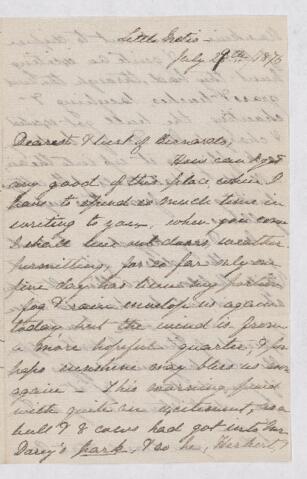 Little Metis
July 9th 1876
Dearest & best of Bernards,
How can I get
any good of this place when I
have to spend so much time in
writing to you, when you come
I shall live out doors, weather
permitting, for so far only one
fine day has been my portion
fog & rain envelop us again
today but the wind is from
a more hopeful quarter, & per
haps sunshine may bless us soon
again - This morning we had
with quite an excitement, as a
bull & 8 cows had got into Mr
Darey's park, & so he, Herbert,